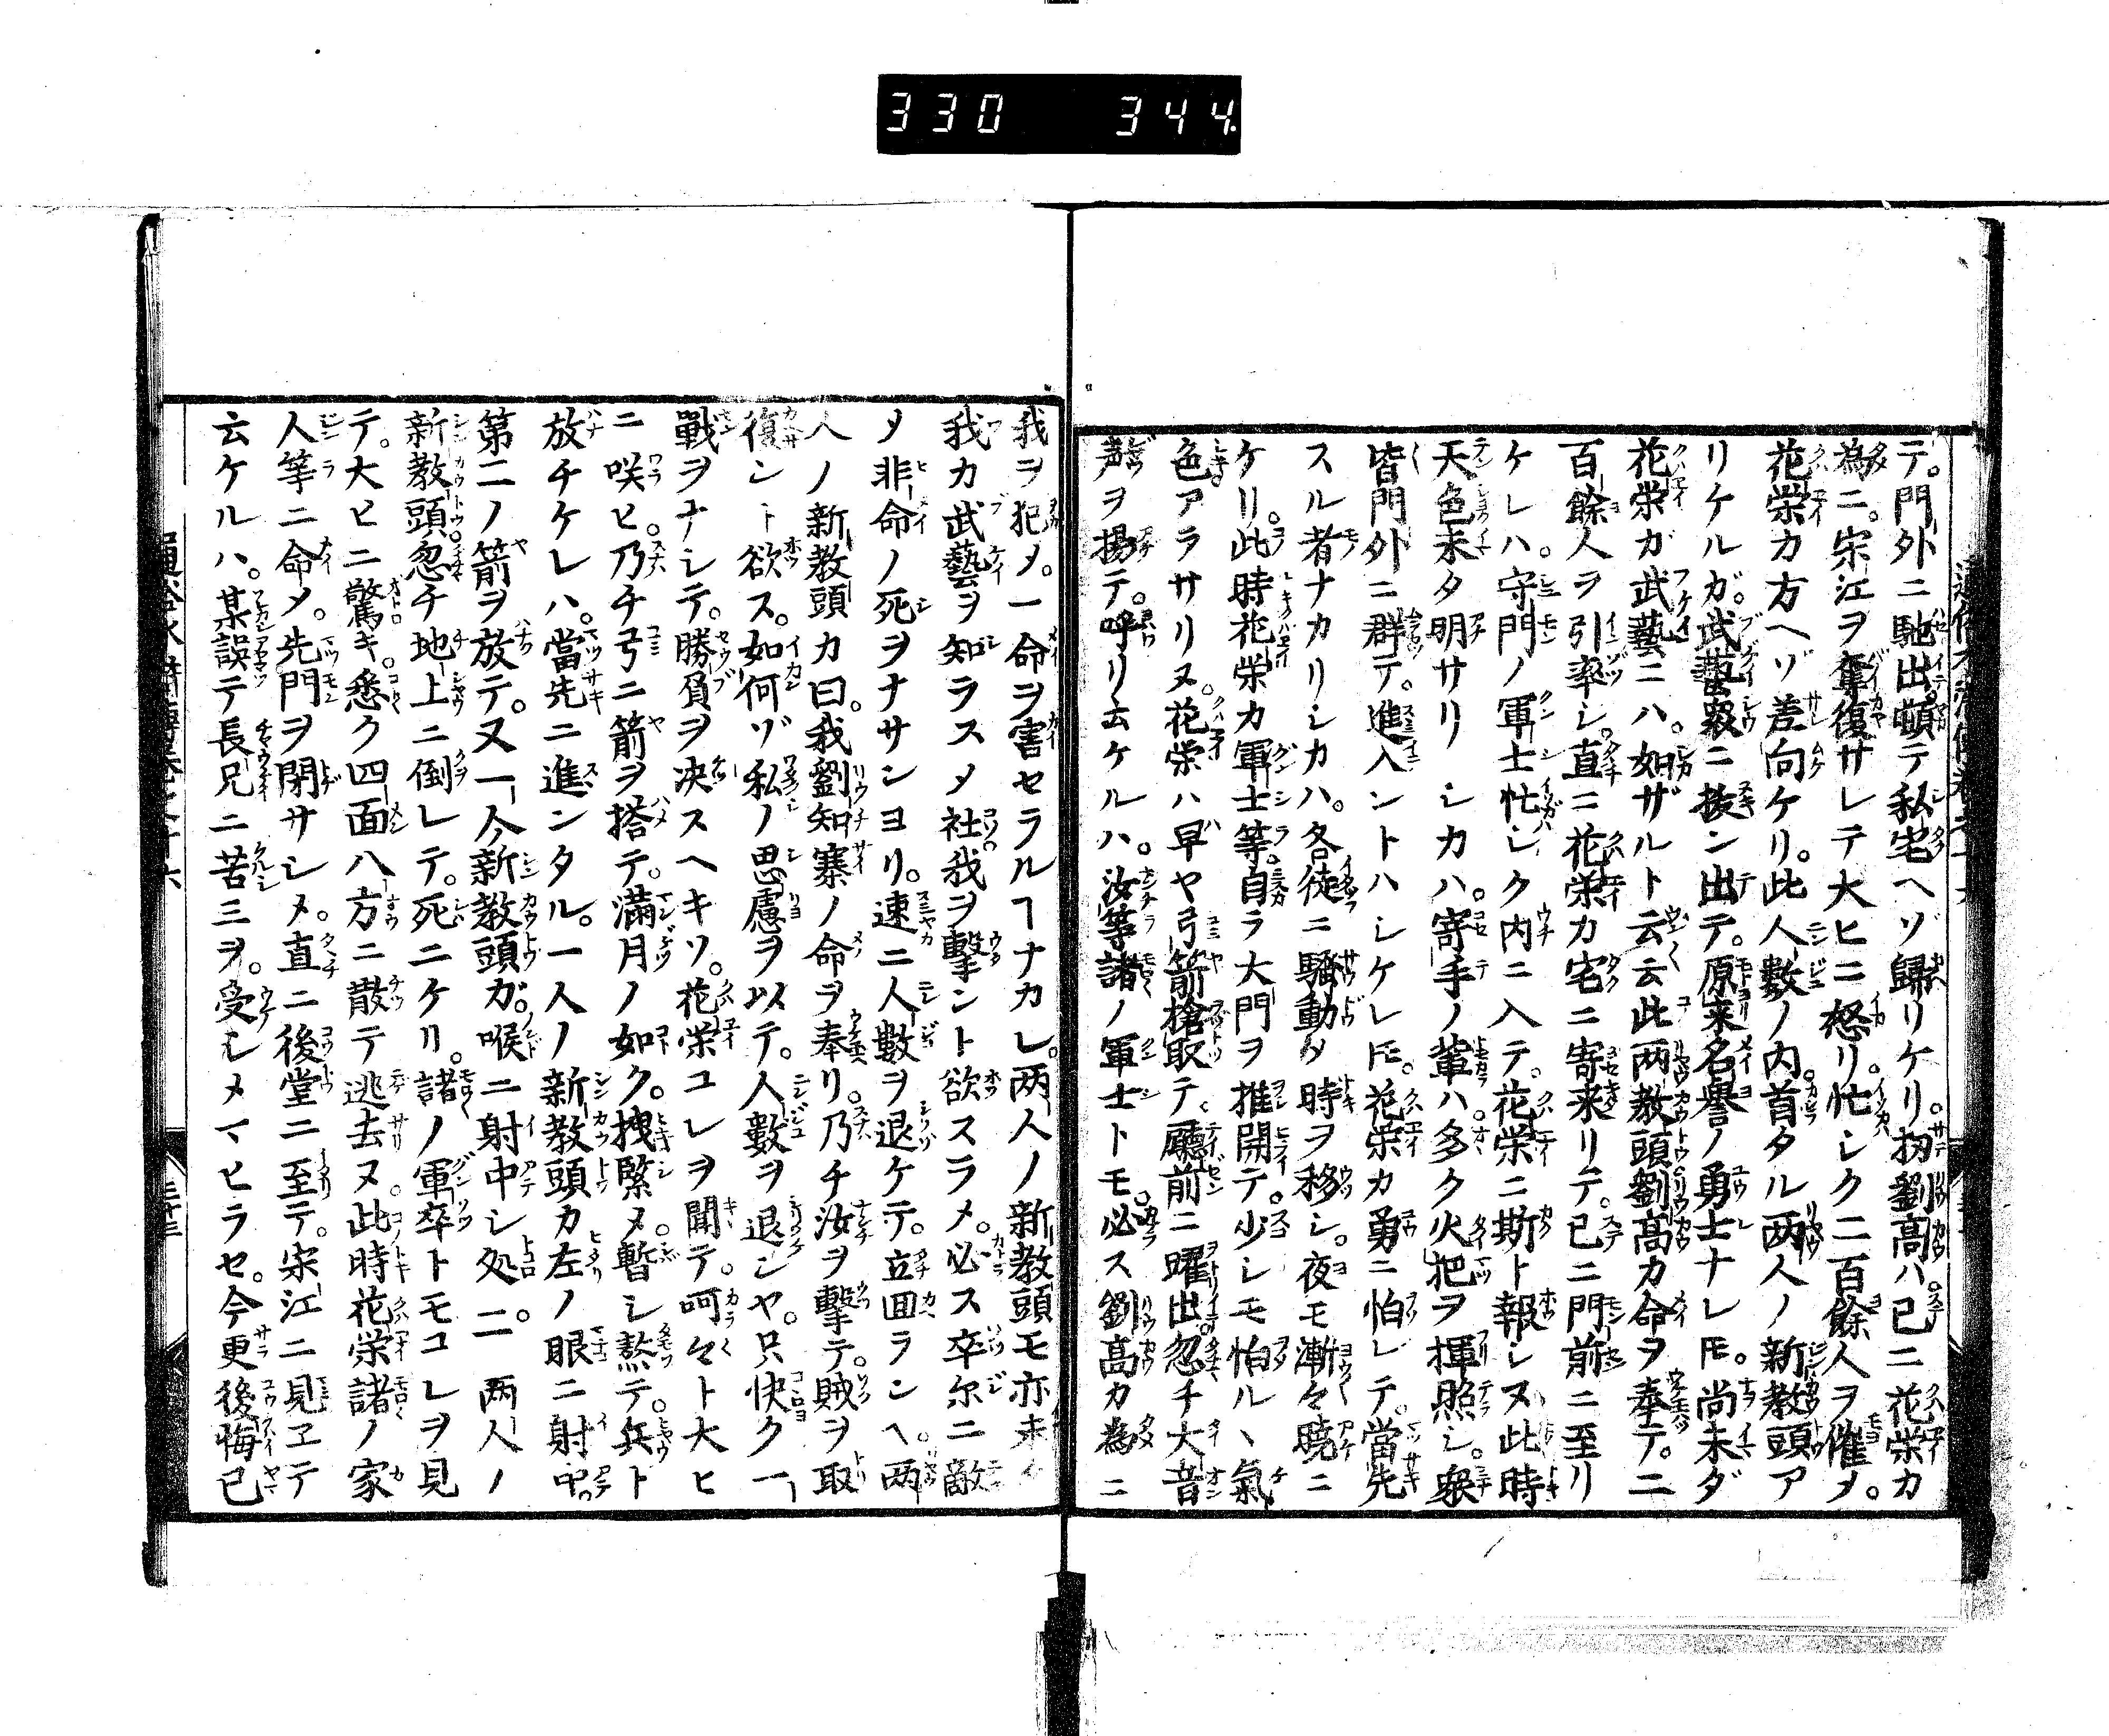 330 344
テ。門外ニ馳出。頓テ私宅ヘゾ歸リケリ。扨劉高ハ。已ニ花栄カ
為ニ。宋江ヲ奪復サレテ大ヒニ怒リ。忙シク二百餘人ヲ催メ。
花栄カ方ヘゾ差向ケリ。此人數ノ内。首タル两人ノ新教頭ア
リケルガ。武藝衆ニ抜ン出テ。原来名譽ノ勇士ナレ𪜈。尚未ダ
花栄ガ武藝ニハ。如ザルト云云此两教頭劉高カ命ヲ奉テ。二
百餘人ヲ引率シ。直ニ花栄カ宅ニ寄来リテ。已ニ門前ニ至リ
ケレハ。守門ノ軍士忙シク内ニ入テ。花栄ニ斯ト報シヌ此時
天色未タ明サリシカハ。寄手ノ輩ハ多ク火把ヲ揮照シ。衆
皆門外ニ群テ。進入ントハシケレ𪜈。花栄カ勇ニ怕レテ。當先
スル者ナカリシカハ。各徒ニ騒動メ時ヲ移シ。夜モ漸々曉ニ
ケリ。此時花栄カ軍士等。自ラ大門ヲ推開テ。少シモ怕ルヽ氣
色アラサリヌ。花栄ハ早ヤ弓箭槍取テ。廳前ニ躍出。忽チ大音
声ヲ揚テ。呼リ云ケルハ。汝等諸ノ軍士トモ。必ス劉高カ為ニ
我ヲ犯メ。一命ヲ害セラルヿナカレ。两人ノ新教頭モ亦未タ
我カ武藝ヲ知ラスメ社我ヲ擊ント欲スラメ。必ス卒尓ニ敵
メ非命ノ死ヲナサンヨリ。速ニ人數ヲ退ケテ。立囬ランヘ。两
人ノ新教頭カ曰。我劉知寨ノ命ヲ奉リ。乃チ汝ヲ擊テ。賊ヲ取
復ント欲ス。如何ゾ私ノ思慮ヲ以テ。人數ヲ退ンヤ。只快ク一
戰ヲナシテ。勝負ヲ决スヘキソ。花栄コレヲ聞テ。呵々ト大ヒ
ニ咲ヒ。乃チ弓ニ箭ヲ搭テ。滿月ノ如ク。拽緊メ。暫シ熬テ。兵ト
放チケレハ。當先ニ進ンタル。一人ノ新教頭カ左ノ眼ニ射中。
第二ノ箭ヲ放テ。又一人新教頭ガ。喉ニ射中シ処ニ。两人ノ
新教頭。忽チ地上ニ倒レテ。死ニケリ。諸ノ軍卒トモコレヲ見
テ。大ヒニ驚キ。悉ク四面八方ニ散テ逃去ヌ。此時花栄諸ノ家
人等ニ命メ。先門ヲ閉サシメ。直ニ後堂ニ至テ。宋江ニ見ヱテ
云ケルハ。某誤テ長兄ニ苦三ヲ。受シメマヒラセ。今更後悔已